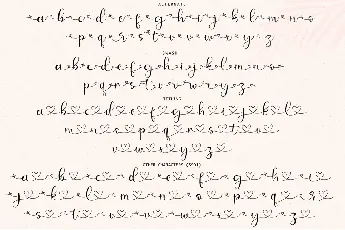 ALTERNATE
a b c d e f g h i j k l m n o
p q r s t u v w x y z
SWASH
a b c d e f g h i j k l m n o
p q r s t u v w x y z
a b c d e f g h i j k l
m n o p q r s t u
v w x y z
OTHER CHARACTERS (SS01)
a b c d e f g h i
j k l m n o p q r
s t u v w x y z